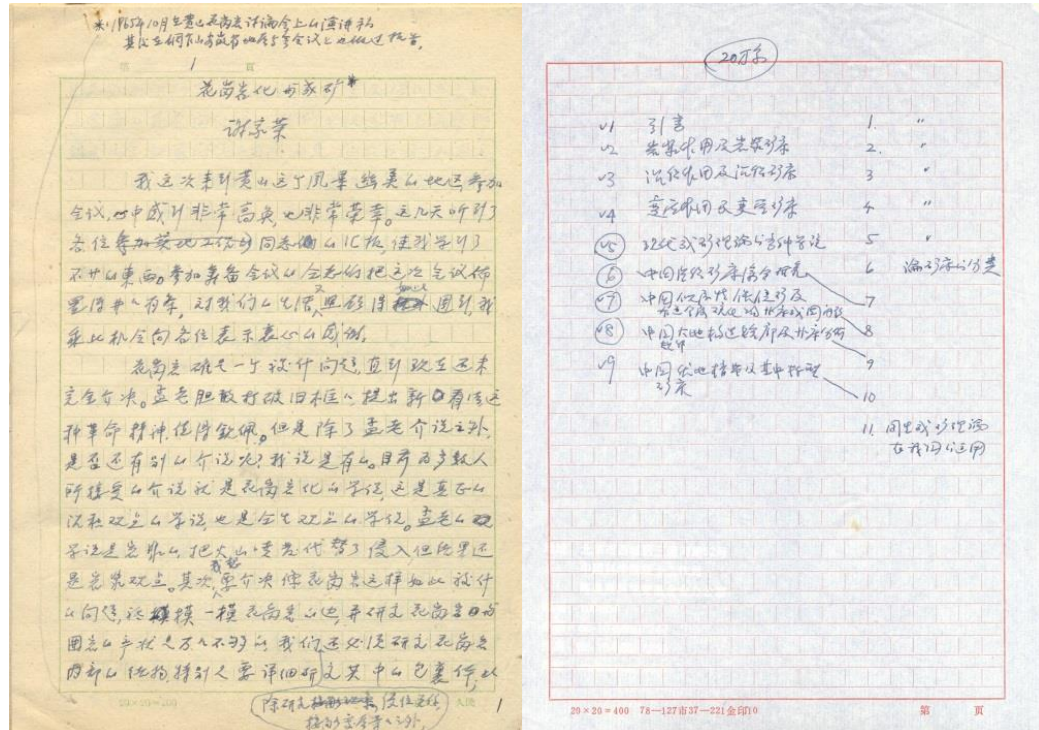 *: 1965年10月在黄山花岗岩讨论会上的演讲稿
第 1 页
花岗岩化与成矿*
谢家荣
我这次来到黄山这个风景幽美的地区参加
会议,心中感到非常高兴,也非常荣幸。这几天听到了
各位同志的汇报,使我学到了
不少的东西。参加筹备会议的同志们把这次会议布
置得井井有条,对我们的生活又照顾得如此周到,我
乘此机会向各位表示衷心的感谢。
花岗岩确是一个复杂问题,直到现在还未
完全解决。孟老胆敢打破旧框框提出新看法这
种革命精神,值得钦佩。但是除了孟老介说之外,
是否还有别的介说呢?我说是有的。目前为多数人
所接受的介说就是花岗岩化的学说,这是真正的
沉积观点的学说,也是全生观点的学说。孟老的
学说是岩浆的,把火山喷发代替了侵入但结果还
是岩浆观点。其次,要解决像花岗岩这样如此复杂
的问题,只摸一摸花岗岩的边,弄研究花岗岩与
围岩的产状是万万不够的,我们还必须研究花岗岩
内部的结构,特别是要详细研究其中的包裹体,以
除研究
接触变质等等之外,
20×20=400
1
20万字
√1 引言 1. "
√2 岩浆作用及岩浆矿床 2. "
√3 沉积作用及沉积矿床 3 "
√4 变质作用及变质矿床 4 "
√5 现代成矿理论的各种学说 5 "
√6 中国沉积矿床综合概观 6 论矿床的分类
√7 7
√8 中国大地构造轮廓及矿床分布 8
9
√9 中国优地槽带及其中特型
矿床
10
11. 同生成矿理论
在我国的运用
20×20=400 78—127市37—221金印10 第 页